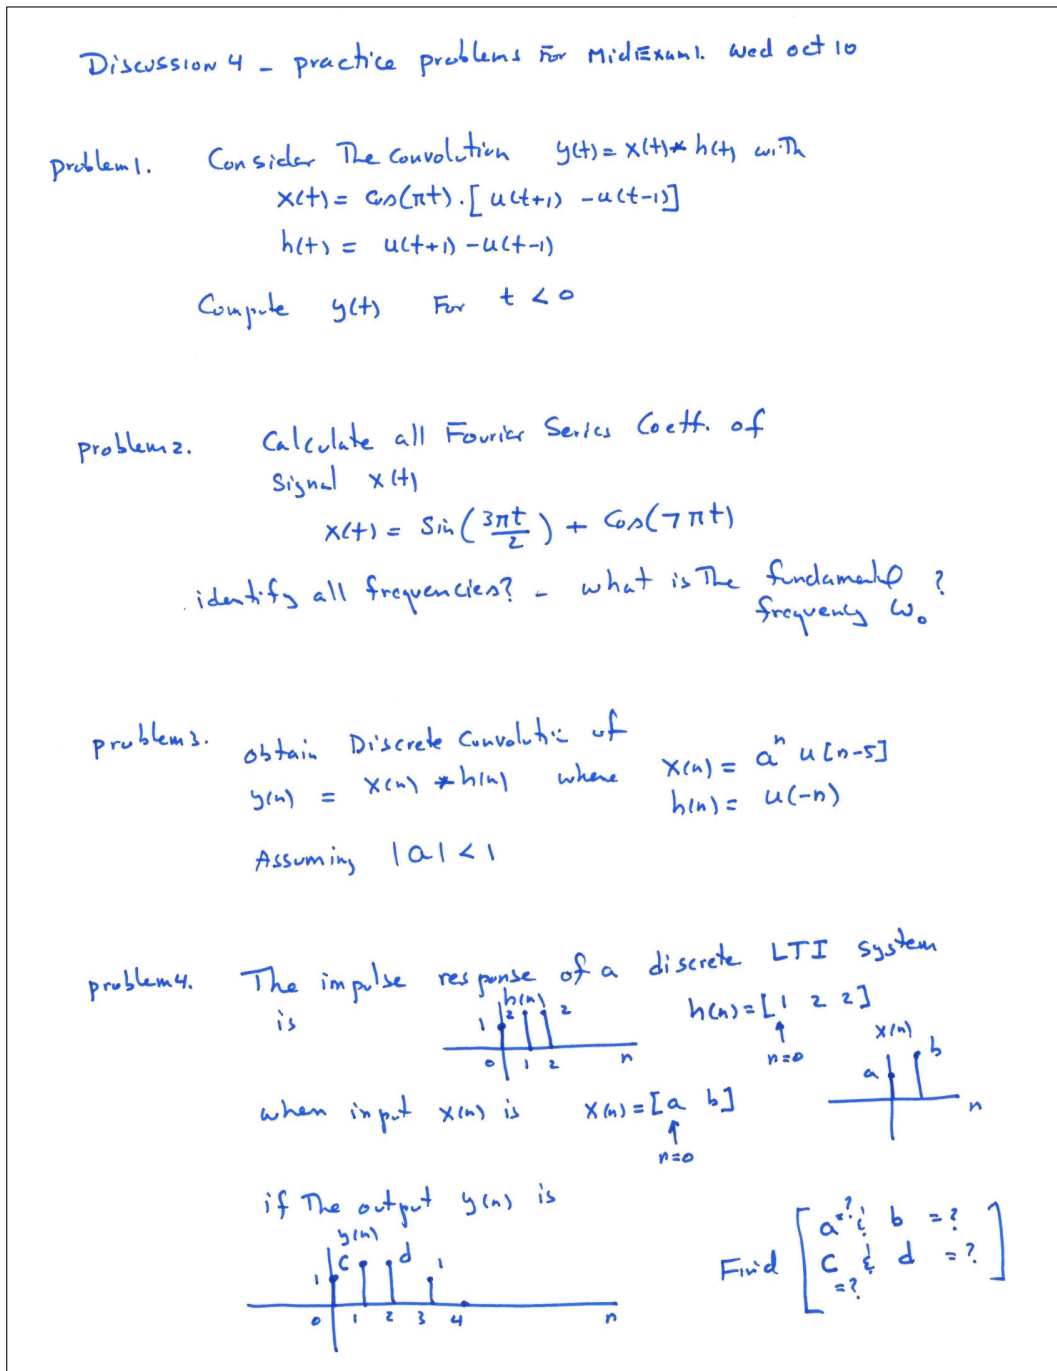 Discussion 4 - practice problems For MidExam1. wed oct 10
problem1. Consider The convolution y(t) = x(t) * h(t) with
x(t) = cos(πt) . [ u(t+1) - u(t-1)]
h(t) = u(t+1) - u(t-1)
Compute y(t) For t < 0
problem2. Calculate all Fourier Series Coeff. of
Signal x(t)
x(t) = Sin(3πt/2) + Cos(7πt)
identify all frequencies? - what is The fundamental ?
frequency ω₀
problem3. obtain Discrete Convolution of
y(n) = x(n) * h(n) where x(n) = aⁿ u[n-5]
h(n) = u(-n)
Assuming |a| < 1
problem4. The impulse response of a discrete LTI system
is h(n) h(n) = [1 2 2]
1 2 2
0 1 2 n
n=0
x(n)
a b
n
when input x(n) is x(n) = [a b]
n=0
if The output y(n) is
y(n)
1 c d 1
0 1 2 3 4 n
Find [ a =? & b = ?
c & d = ? ]
= ?